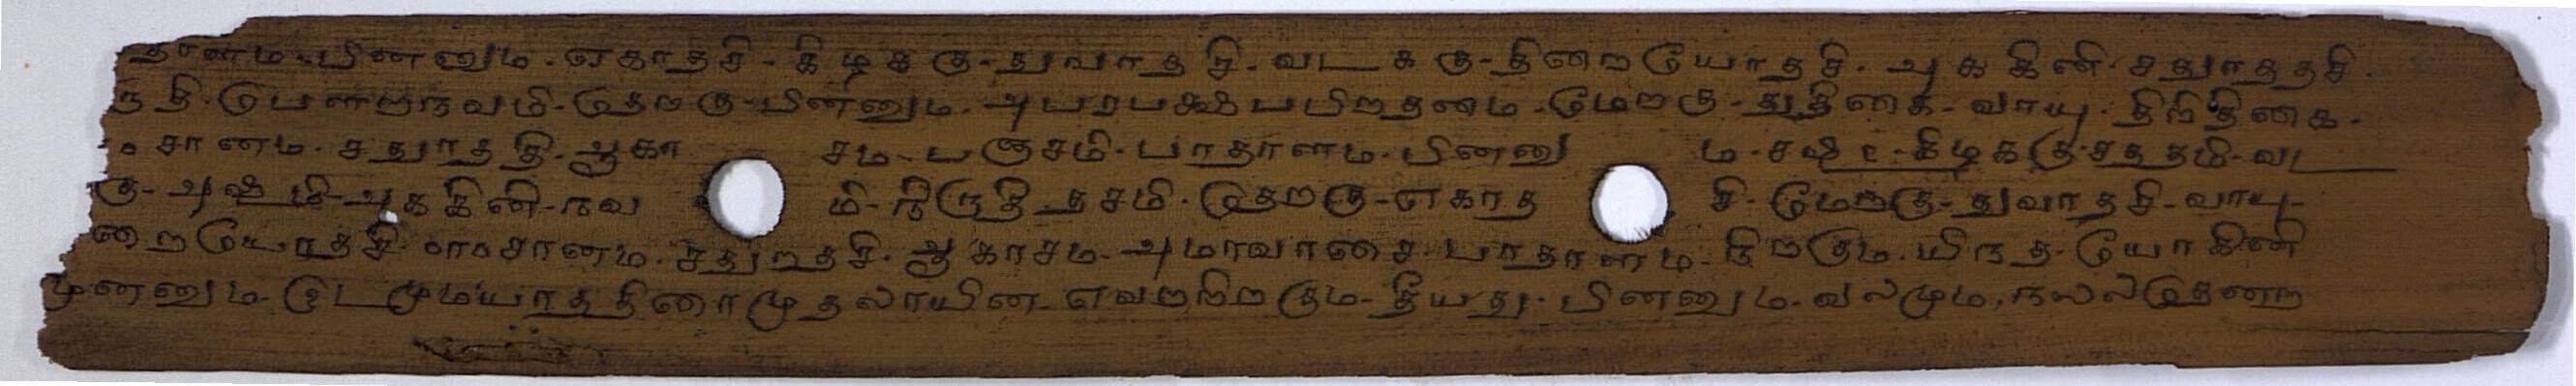 தானம-பினனும-எகாதசி-கிழககு-துவாதசி-வடககு-திறையோதசி-அககினி-சதுாததசி
ருதி-பெளறநவமி-தெறகு-பினனும-அபரபக்ஷபபிறதமை-மேறகு-துதிகை-வாயு-திறிதிகை-
ஂசானம-சதுாததி-ஆகா சம-பஞசமி-பாதாளம-பினனு ம-சஷடி-கிழககு-சததமி-வட
கு-அஷடமி-அககினி-நவ மி-நிருதி-தசமி-தெறகு-எகாத சி-மேறகு-துவாதசி-வாயு-
றையோதசி-ஈசானம-சதுறதசி-ஆகாசம-அமாவாசை-பாதாளம-நிறகும-யிநத-யோகினி
முனனும-இடமுமயாததிரைமுதலாயின-எவறறிறகும-தீயது-பினனும-வலமும-நலலதெனற